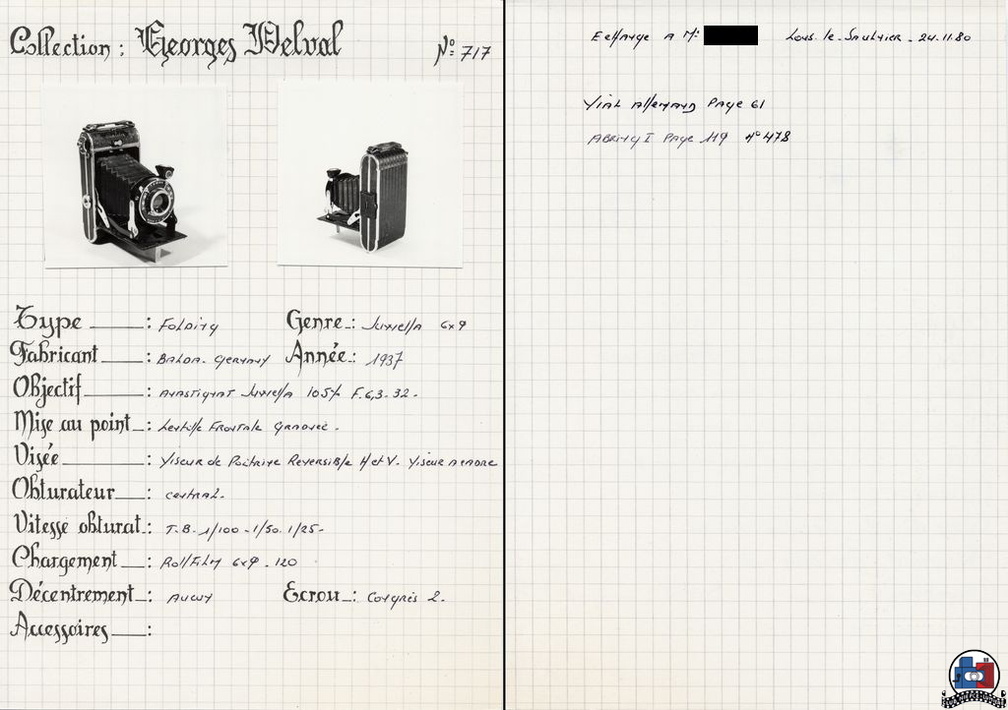 Collection : Georges Delval N° 717
Type : Folding Genre : Juwella 6x9
Fabricant : Balda. Germany Année : 1937
Objectif : Anastigmat Juwella 105% F.6,3-32.
Mise au point : Lentille Frontale Graduée.
Visée : Viseur de Poitrine Reversible H et V. Viseur a cadre
Obturateur : central.
Vitesse obturat. : T.B. 1/100-1/50.1/25-
Chargement : Rollfilm 6x9. 120
Décentrement : Aucun Ecrou : Congrès 2.
Accessoires :
Echange a Mr Lons. le. Saulnier. 24.11.80
Vial Allemand Page 61
Abring I Page 119 N° 478